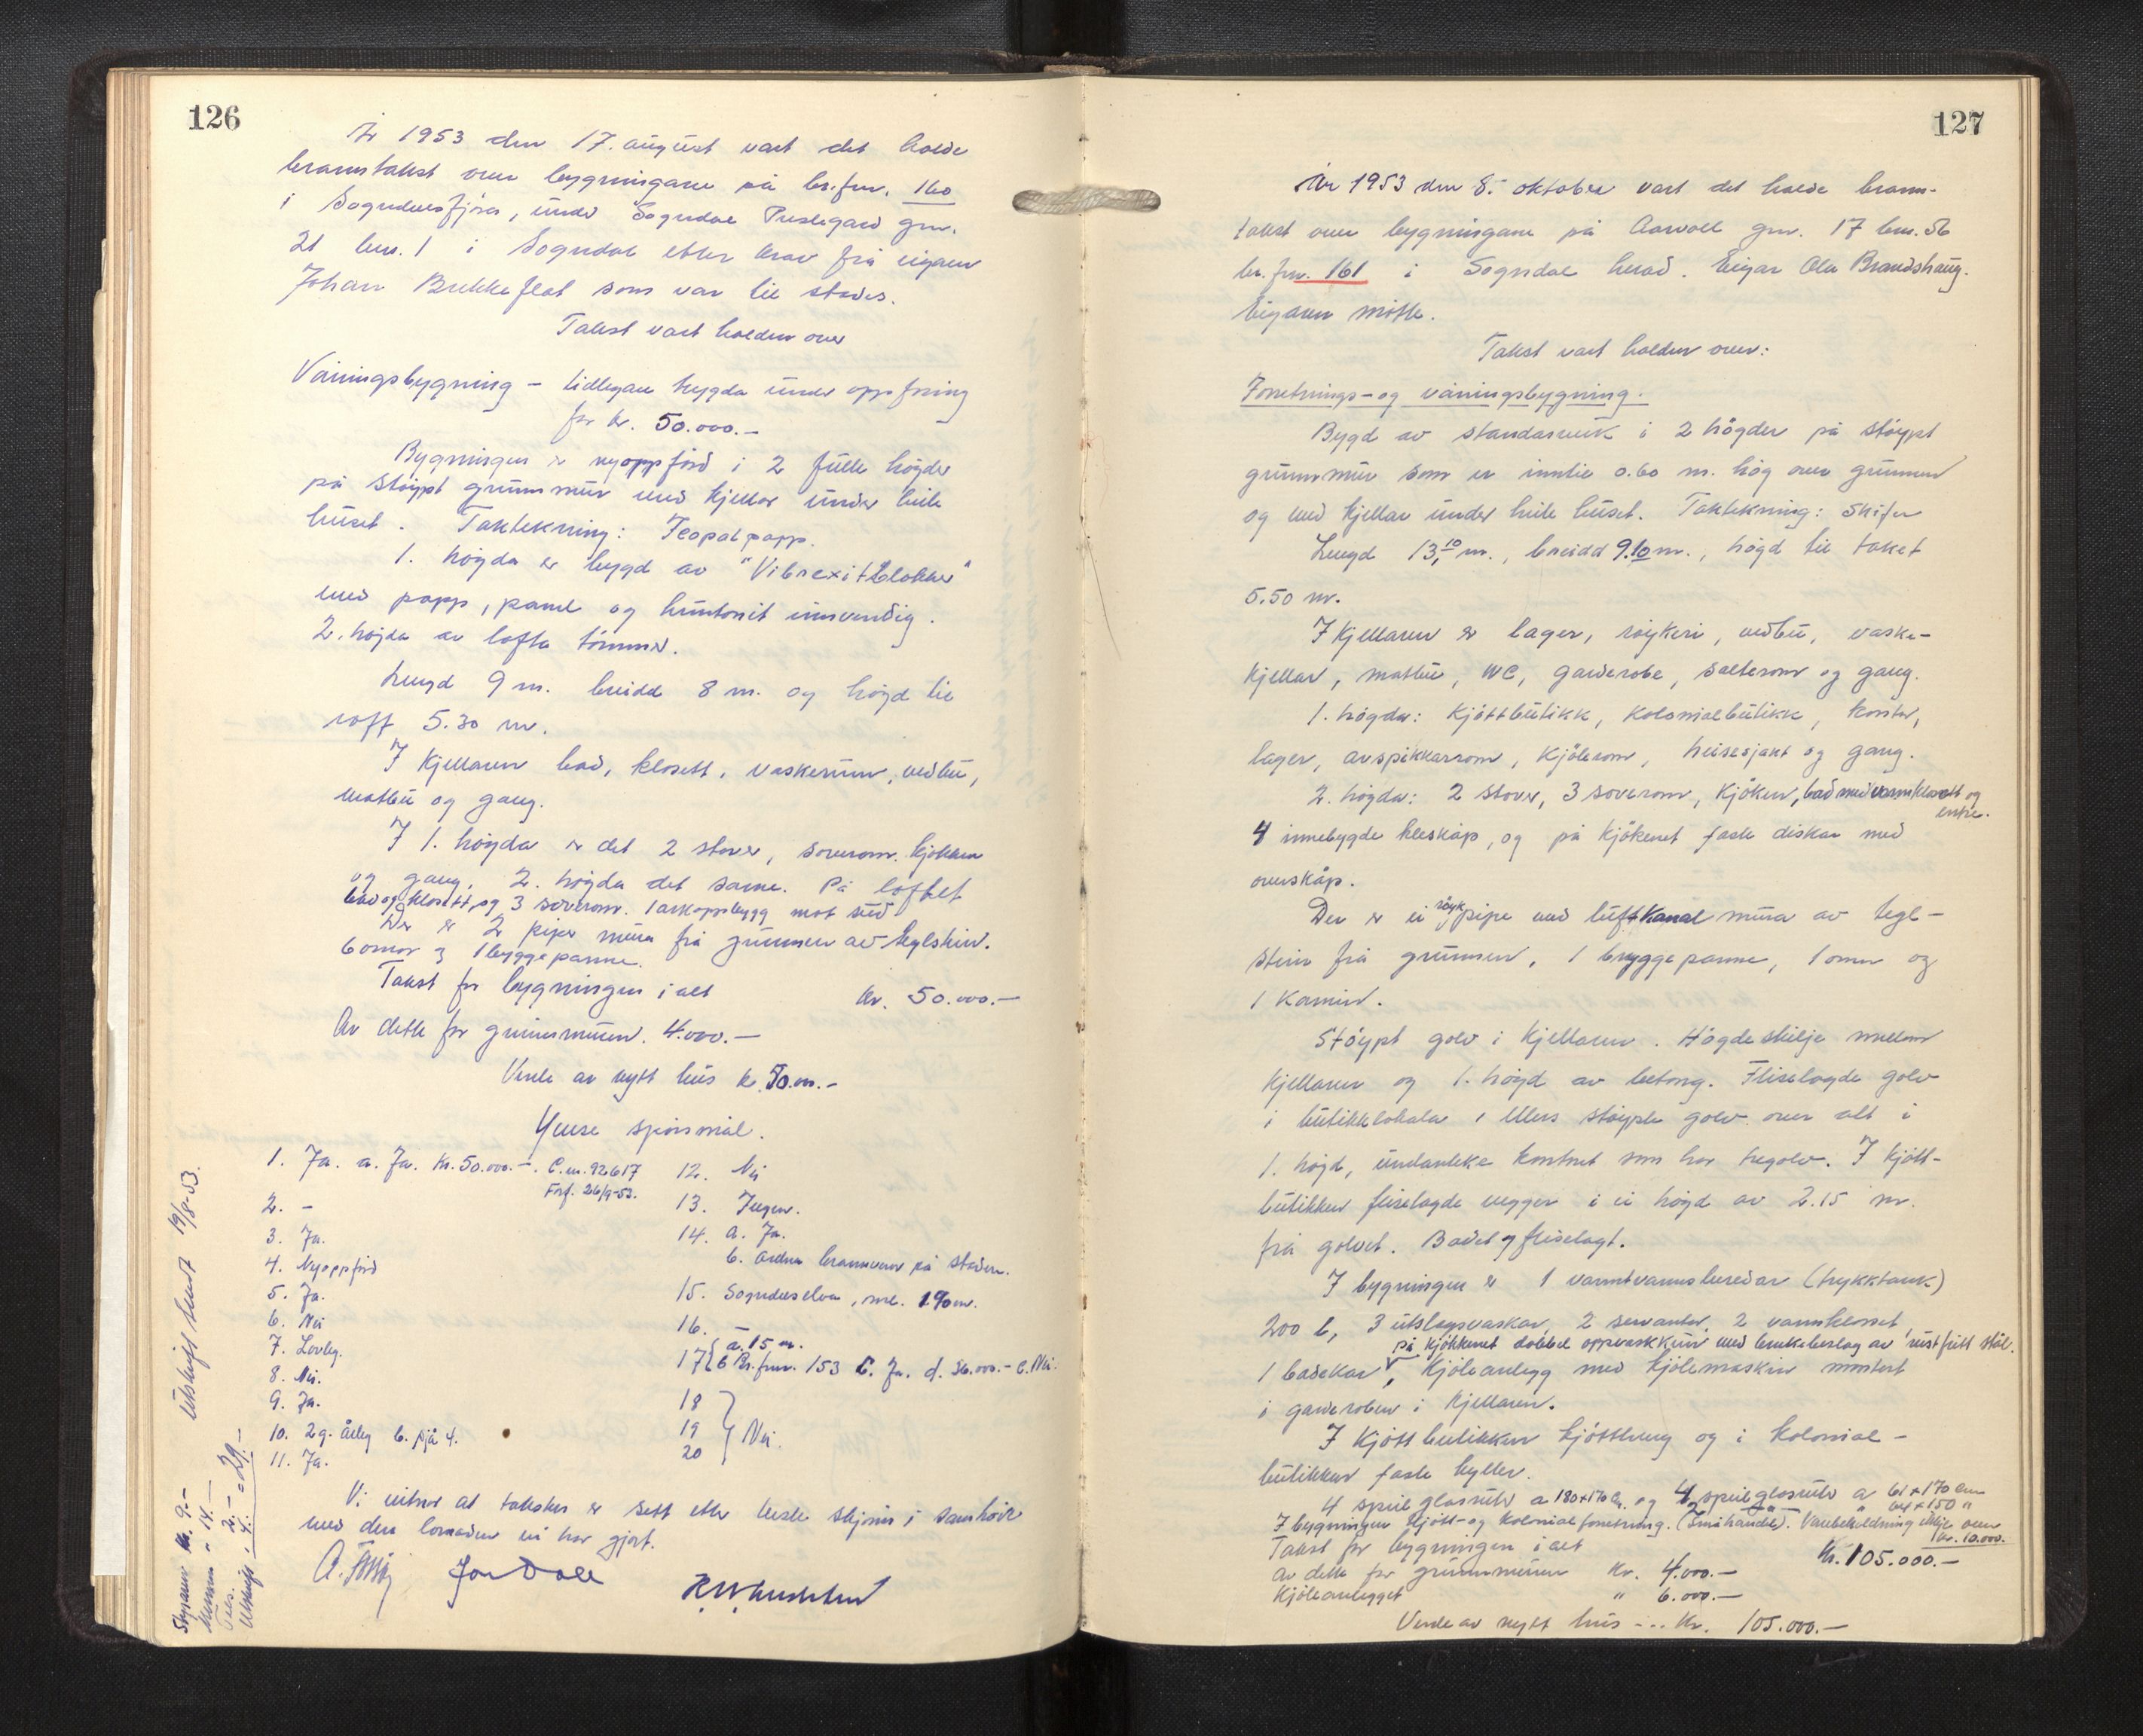 126
År 1953 den 17. august vart det halde
branntakst over bygningane på br.fnr. 160
i Sogndalsfjøra, under Sogndal Prestegard gnr.
21 bnr. 1 i Sogndal etter krav frå eigaren
Johan Brekkeflat som var til stades.
Takst vart halden over
Våningsbygning – tidlegare trygda under oppføring
for kr. 50.000.–
Bygningen er nyoppførd i 2 fulle høgder
på støypt grunnmur med kjellar under heile
huset. Taktekning: Icopalpapp.
1. høgda er bygd av "Vibrexitblokker"
med papp, panel og huntonit innvendig.
2. høgda av lafta tømmer.
Lengd 9 m. breidd 8 m. og høgd til
røff 5.30 m.
I kjellaren bad, klosett, vaskerum, vedbu,
matbu og gang.
I 1. høgda er det 2 stover, soverom, kjøkken
og gang. 2. høgda det same. På loftet
bad og klosett, og 3 soverom. 1 arkoppbygg mot sud
Der er 2 piper mura frå grunnen av teglstein.
6 omnar og 1 bryggepanne.
Takst for bygningen i alt kr. 50.000.–
Av dette for grunnmuren 4.000.–
Verde av nytt hus kr. 50.000.–
Ymse spørsmål.
1. Ja. a. Ja. Kr. 50.000.–. C.m. 92617
Forf. 26/9-53.
2. –
3. Ja.
4. Nyoppførd
5. Ja.
6. Nei
7. Lovleg.
8. Nei.
9. Ja.
10. 2 g. årleg b. sjå 4.
11. Ja.
12. Nei
13. Ingen.
14. a. Ja.
b. ordna brannvern på staden.
15. Sogndalselva, ml. 190 m.
16. –
17 { a. 15 m.
b Br.fnr. 153 c. Ja. d. 36.000.– e. Nei.
18
19 } Nei.
20
Vi vitnar at taksten er sett etter beste skjønn i samhøve
med den lovnaden vi har gjort.
Jon Dale
Utskrift sendt 19/8-53.
Utskrift
127
År 1953 den 8. oktober vart det halde brann-
takst over bygningane på Aarvoll gnr. 17 bnr. 56
br.fnr. 161 i Sogndal herad. Eigar Ola Brandshaug.
Eigaren møtte.
Takst vart halden over:
Forretnings- og våningsbygning.
Bygd av standarverk i 2 høgder på støypt
grunnmur som er inntil 0.60 m. høg over grunnen
og med kjellar under heile huset. Taktekning: Skifer
Lengd 13,10 m., breidd 9.10 m., høgd til taket
5.50 m.
I kjellaren er lager, røykeri, vedbu, vaske-
kjellar, matbu, WC, garderobe, salterom og gang.
1. høgda: Kjøttbutikk, kolonialbutikk, kontor,
lager, avspikkarrom, kjølerom, heisesjakt og gang.
2. høgda: 2 stover, 3 soverom, kjøken, bad med vannklosett og
entre.
4 innebygde kleskåp, og på kjøkenet faste diskar med
overskåp.
Der er ei røykpipe med luftkanal mura av tegl-
stein frå grunnen, 1 bryggepanne, 1 omn og
1 kamin.
Støypt golv i kjellaren. Høgdeskilje mellom
kjellaren og 1. høgd av betong. Fliselagde golv
i butikklokala, ellers støypte golv over alt i
1. høgd, undanteke kontoret som har tregolv. I kjøtt-
butikken fliselagde vegger i ei høgd av 2.15 m.
frå golvet. Badet og fliselagt.
I bygningen er 1 varmtvannsberedar (trykktank)
200 l, 3 utslagsvaskar, 2 servantar, 2 vannklosset,
på kjøkkenet dobbel oppvaskkum med benkebeslag av rustfritt stål.
1 badekar, Kjøleanlegg med kjølemaskin montert
i garderoben i kjellaren.
I kjøttbutikken kjøttheng og i kolonial-
butikken faste hyller.
4 speilglasrute a 180x170 cm. og 4 speilglasrute a 61x170 cm
2 " 64x150 "
I bygningen kjøtt- og kolonialforretning. (Småhandel). Varebeholdning ikkje over
kr. 10.000.
Takst for bygningen i alt Kr. 105.000.–
Av dette for grunnmuren Kr. 4.000.–
Kjøleanlegget " 6.000.–
Verde av nytt hus ... Kr. 105.000.–